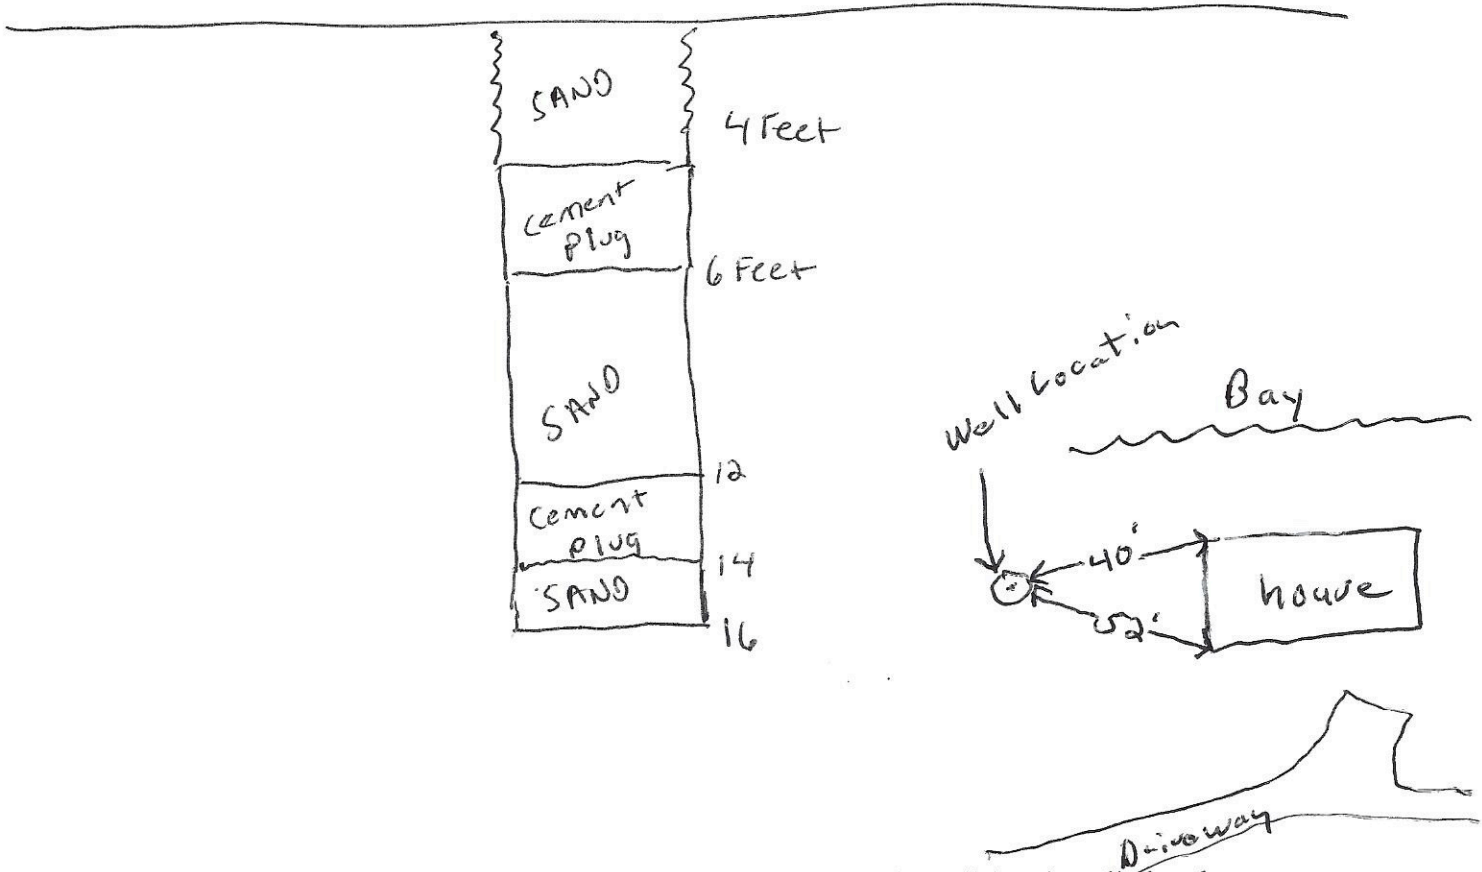 SAND
4 Feet
cement
plug
6 Feet
SAND
12
cement
plug
14
SAND
16
Well Location
Bay
40'
52'
house
Driveway